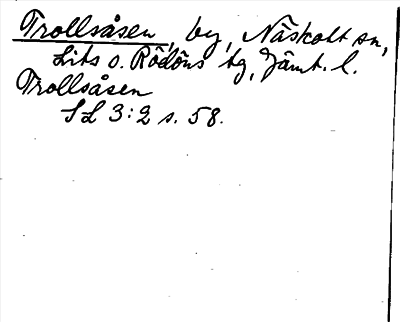 Trollsåsen, by, Näskott sn,
Lits o. Rödöns tg, Jämt. l.
Trollsåsen
SL 3:2 s. 58.